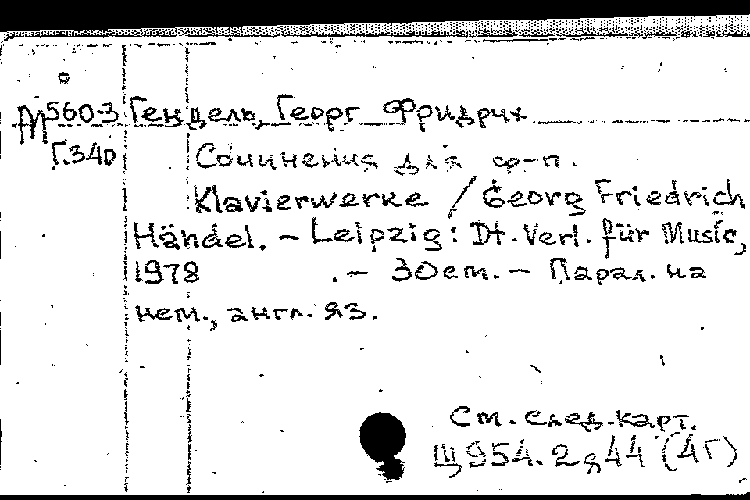 М560-3 Гендель, Георг Фридрих
Г.340
Сочинения для ф-п.
Klavierwerke / Georg Friedrich
Händel. – Leipzig: Dt. Verl. für Music,
1978 . – 30 cm. – Парал. на
нем., англ. яз.
См. след. карт.
Щ954.2я44 (4Г)